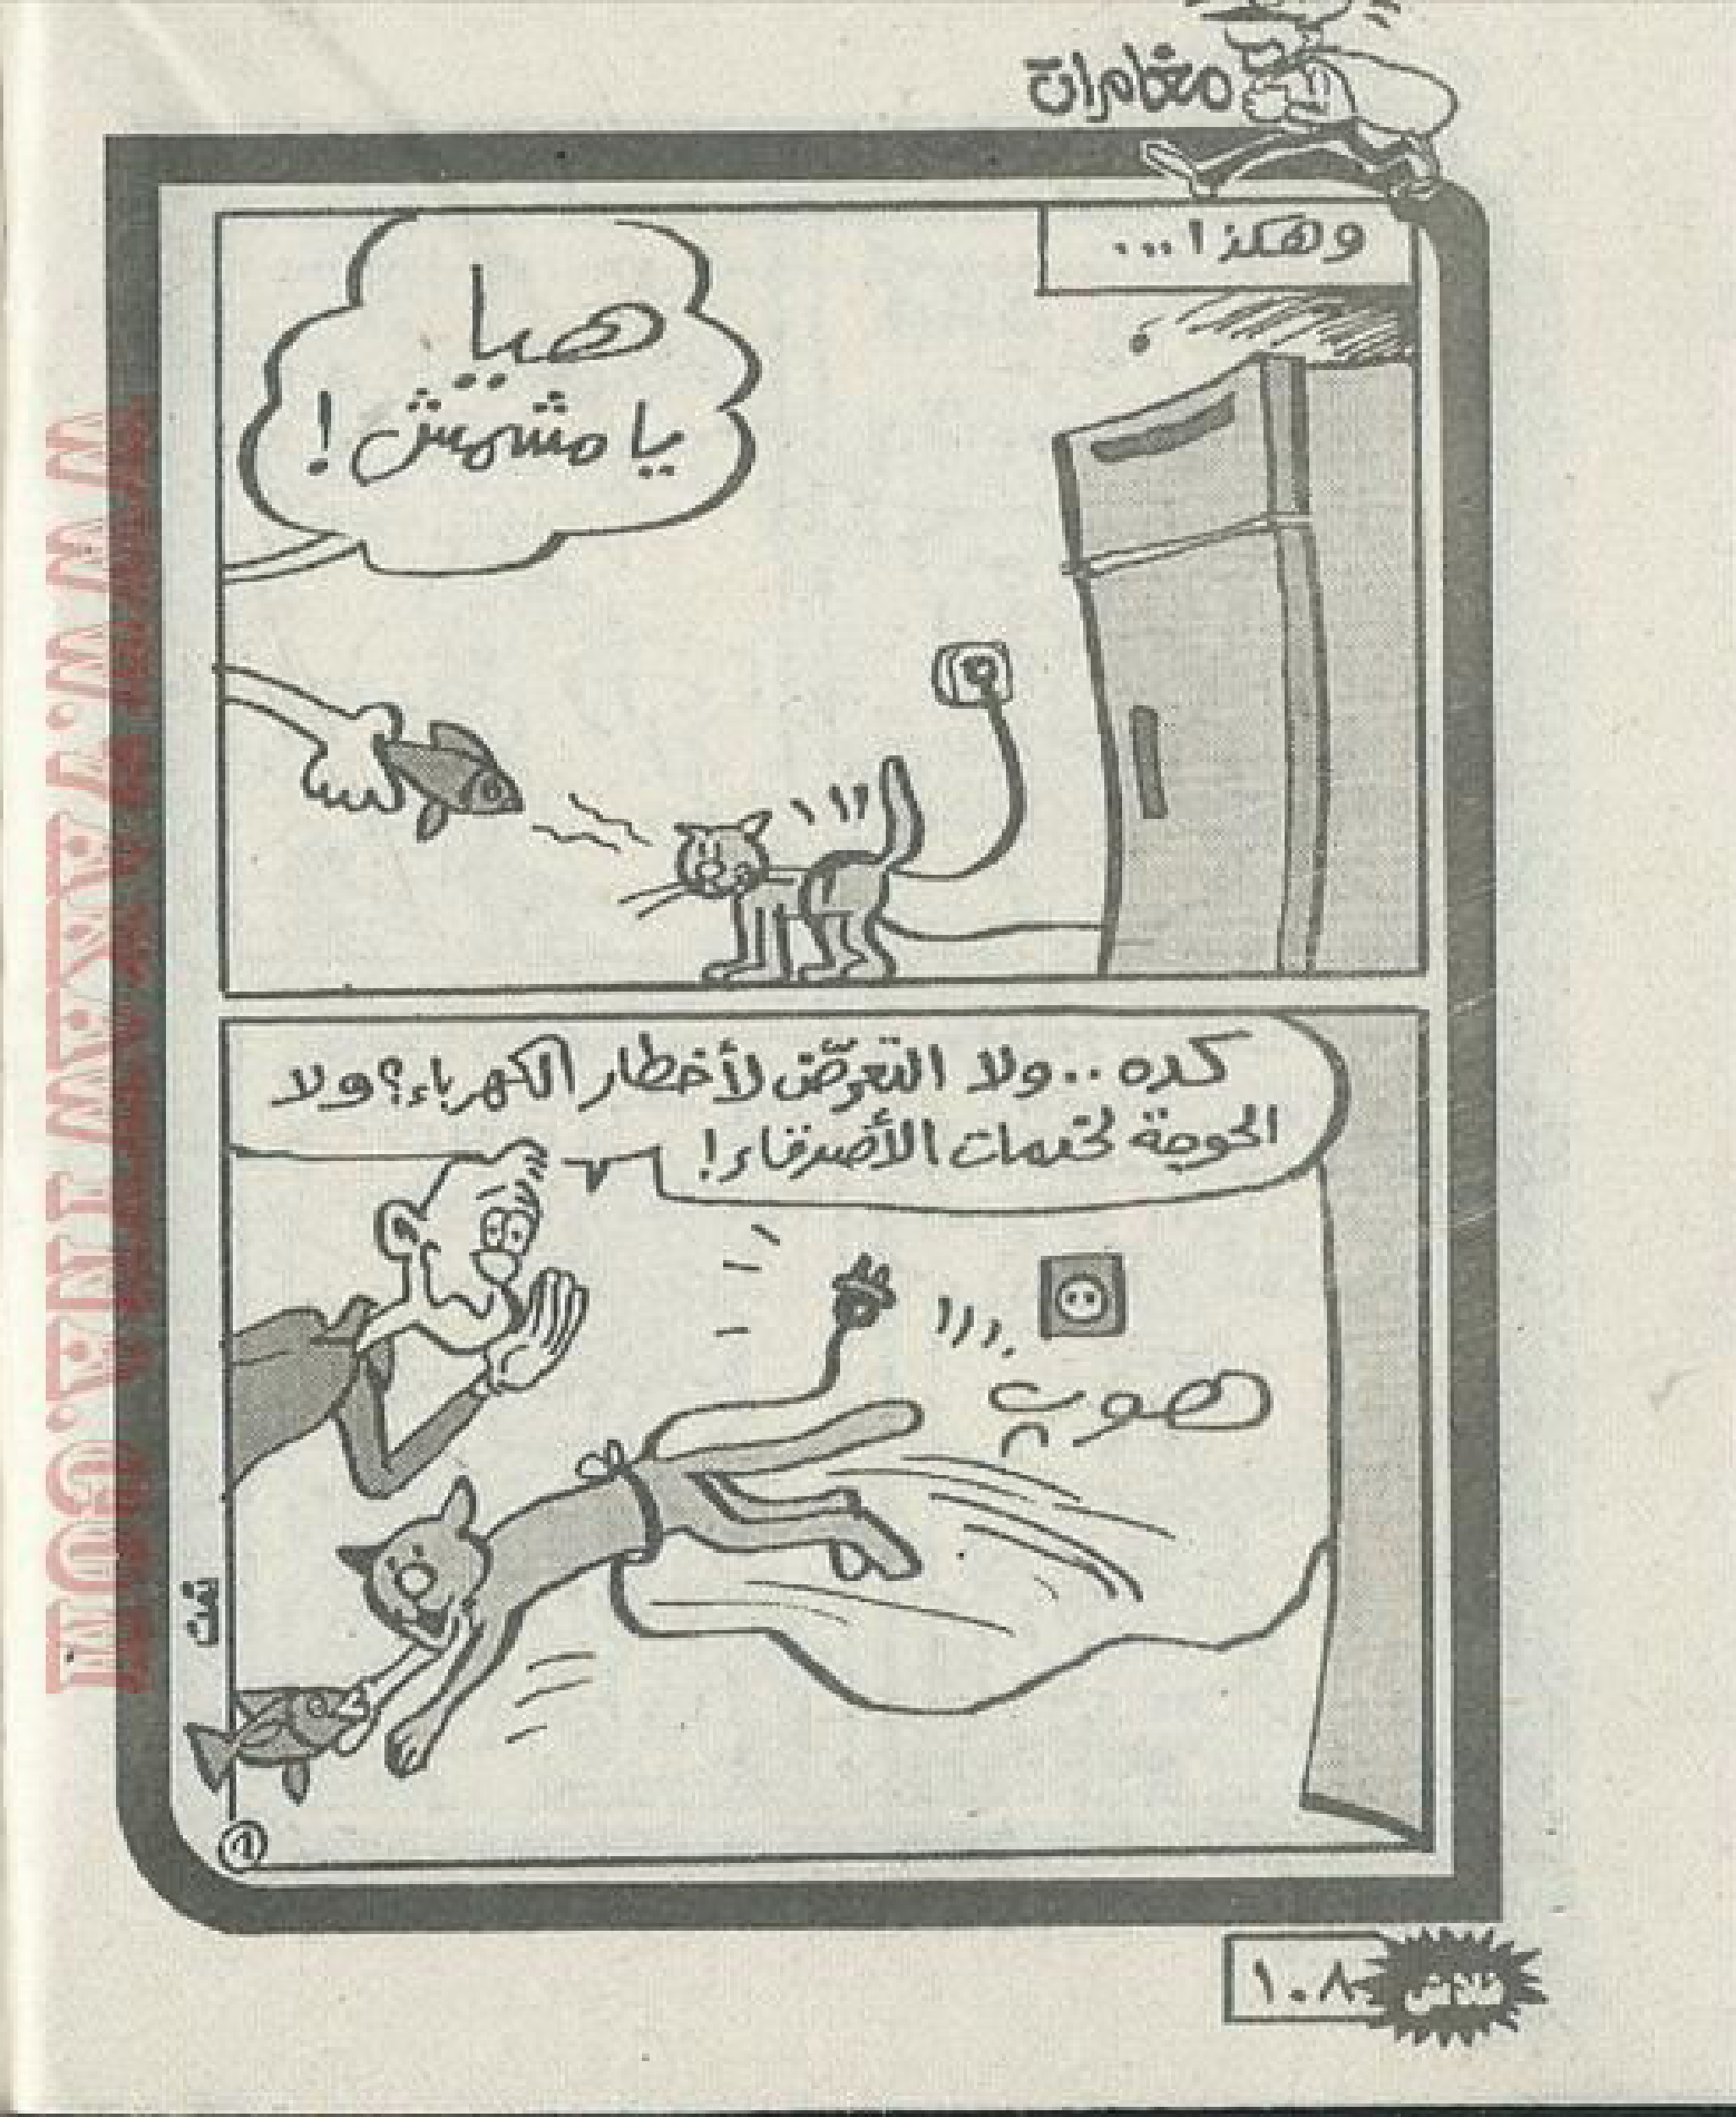 مغامرات
وهكذا...
هيا
يا مشمش!
كده.. ولا التعرّض لأخطار الكهرباء؟ ولا
الحوجة لخدمات الأصدقاء!
هوب
تمت
فلاش ١٠٨